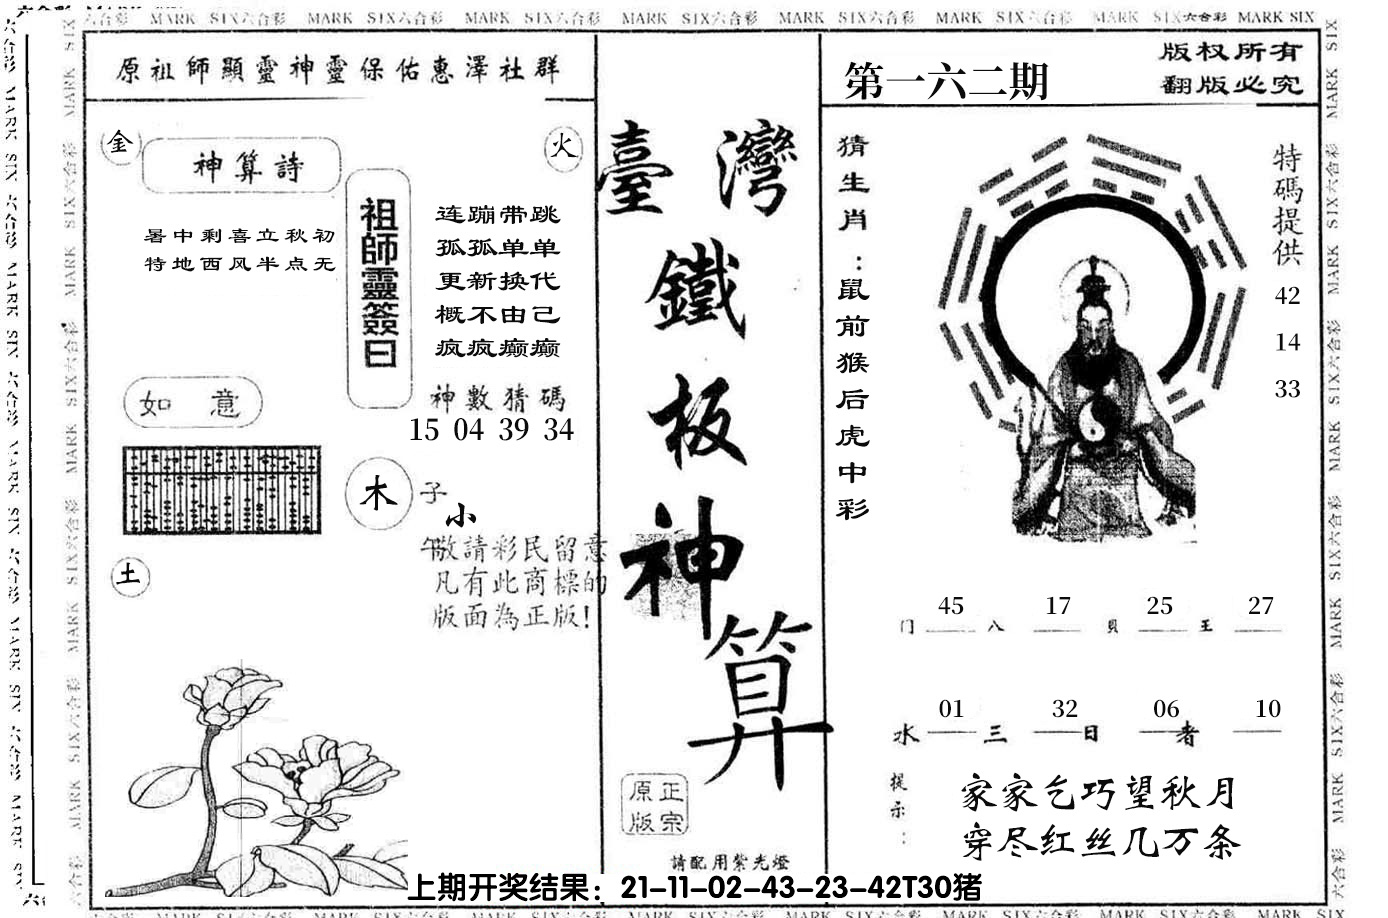 MARK SIX六合彩 MARK SIX六合彩 MARK SIX六合彩 MARK SIX六合彩 MARK SIX六合彩 MARK SIX六合彩 MARK SIX六合彩 MARK SIX
原祖師顯靈神靈保佑惠澤社群
金
神算詩
火
暑中剩喜立秋初
特地西风半点无
祖師靈簽曰
连蹦带跳
孤孤单单
更新换代
概不由己
疯疯癫癫
神數猜碼
15 04 39 34
如意
木
子
小
午
敬請彩民留意
凡有此商標的
版面為正版!
土
臺灣
鐵
板
神
算
正宗
原版
請配用紫光燈
第一六二期
版权所有
翻版必究
猜生肖:鼠前猴后虎中彩
特碼提供
42
14
33
45 17 25 27
门 八 貝 王
01 32 06 10
水 三 日 者
提示:
家家乞巧望秋月
穿尽红丝几万条
上期开奖结果：21-11-02-43-23-42T30猪